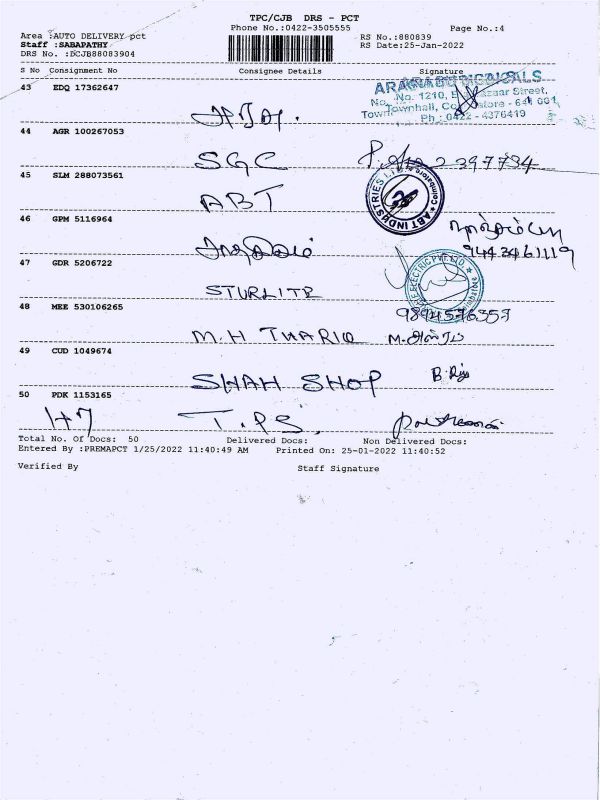 TPC/CJB DRS - PCT
Phone No.:0422-3505555 Page No.:4
Area :AUTO DELIVERY pct RS No.:880839
Staff :SABAPATHY RS Date:25-Jan-2022
DRS No. :DCJB88083904
S No Consignment No Consignee Details Signature
43 EDQ 17362647
No. 1210, Bazaar Street,
Townhall, 641 001
Ph : 0422 - 4376419
44 AGR 100267053
SGC
45 SLM 288073561
ABT
ABT INDUSTRIES Coimbatore
46 GPM 5116964
9443461119
47 GDR 5206722
STURLITE
ELECTRIC PVT LTD
48 MEE 530106265 9894576357
M.H THARIQ
49 CUD 1049674
SHAH SHOP
50 PDK 1153165
147 T.P.S.
Total No. Of Docs: 50 Delivered Docs: Non Delivered Docs:
Entered By :PREMAPCT 1/25/2022 11:40:49 AM Printed On: 25-01-2022 11:40:52
Verified By Staff Signature